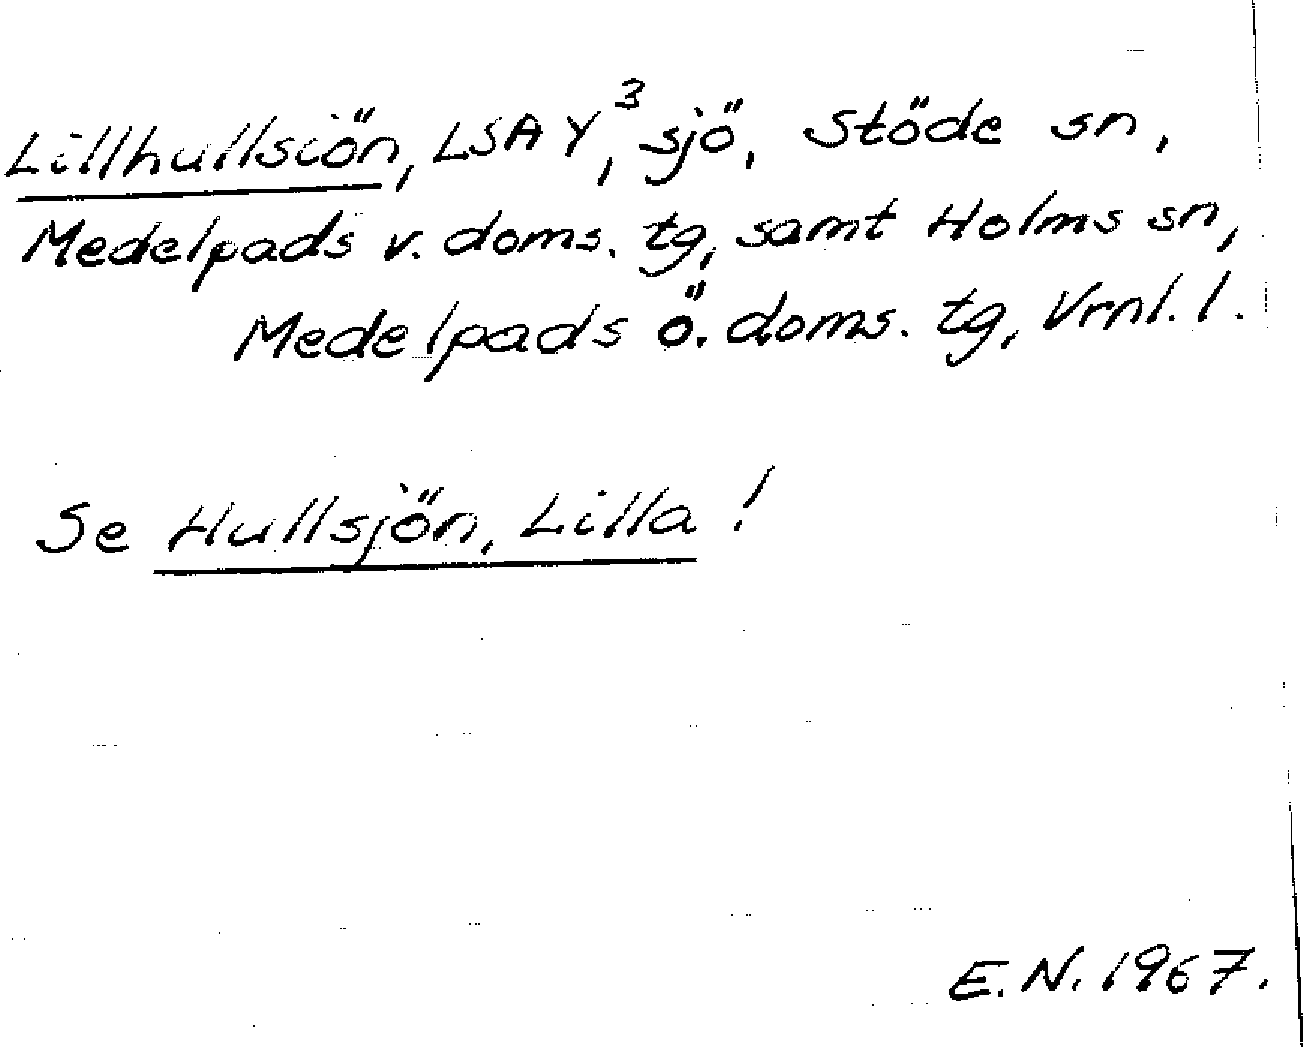 Lillhullsiön, LSA Y³, sjö, Stöde sn,
Medelpads v. doms. tg, samt Holms sn,
Medelpads ö. doms. tg, Vrnl. l.
Se Hullsjön, Lilla!
E.N. 1967.